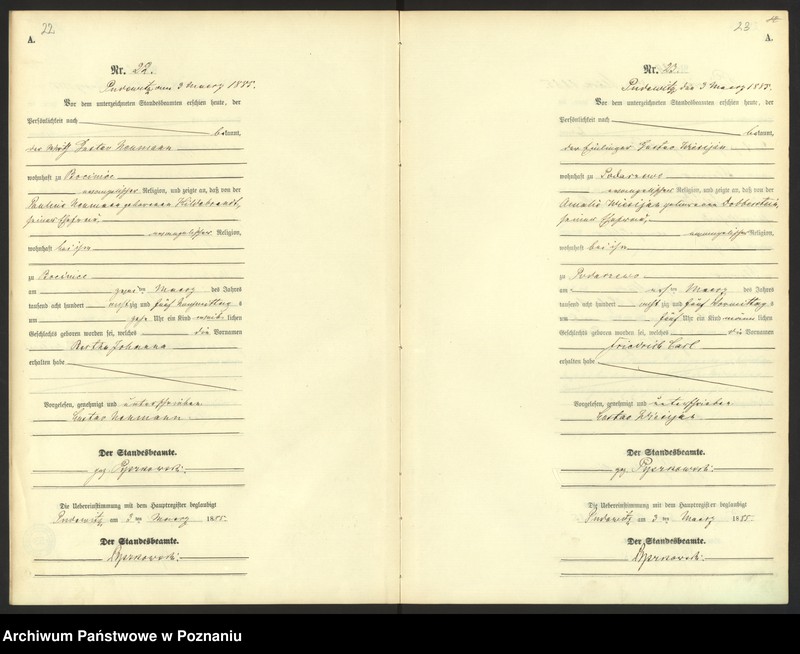 22
A.
Nr. 22.
Pudewitz, am 3 Maerz 1885.
Vor dem unterzeichneten Standesbeamten erschien heute, der
Persönlichkeit nach
bekannt,
der Wirth Gustav Neumann
wohnhaft zu Bocinice
evangelischer Religion, und zeigte an, daß von der
Pauline Neumann geborenen Hildebrandt,
seiner Ehefrau
evangelischer Religion,
wohnhaft bei ihm
zu Bocinice
am zweiten Maerz des Jahres
tausend acht hundert achtzig und fünf Nachmittag s
um Uhr ein Kind weib lichen
Geschlechts geboren worden sei, welches die Vornamen
Bertha Johanna
erhalten habe
Vorgelesen, genehmigt und unterschrieben
Gustav Neumann
Der Standesbeamte.
gez Pyszkowski.
Die Uebereinstimmung mit dem Hauptregister beglaubigt
Pudewitz am 3 ten Maerz 1885.
Der Standesbeamte.
Pyszkowski.
23
A.
Nr. 23.
Pudewitz, den 3 Maerz 1885.
Vor dem unterzeichneten Standesbeamten erschien heute, der
Persönlichkeit nach
bekannt,
der Gustav
wohnhaft zu Podarzewo
evangelischer Religion, und zeigte an, daß von der
Amalie geborenen Dobberstein,
seiner Ehefrau,
evangelischer Religion,
wohnhaft bei ihm
zu Podarzewo
am ersten Maerz des Jahres
tausend acht hundert acht zig und fünf Vormittag s
um fünf Uhr ein Kind männ lichen
Geschlechts geboren worden sei, welches die Vornamen
Friedrich Carl
erhalten habe
Vorgelesen, genehmigt und unterschrieben
Gustav
Der Standesbeamte.
gez Pyszkowski.
Die Uebereinstimmung mit dem Hauptregister beglaubigt
Pudewitz am 3 ten Maerz 1885.
Der Standesbeamte.
Pyszkowski.
Archiwum Państwowe w Poznaniu